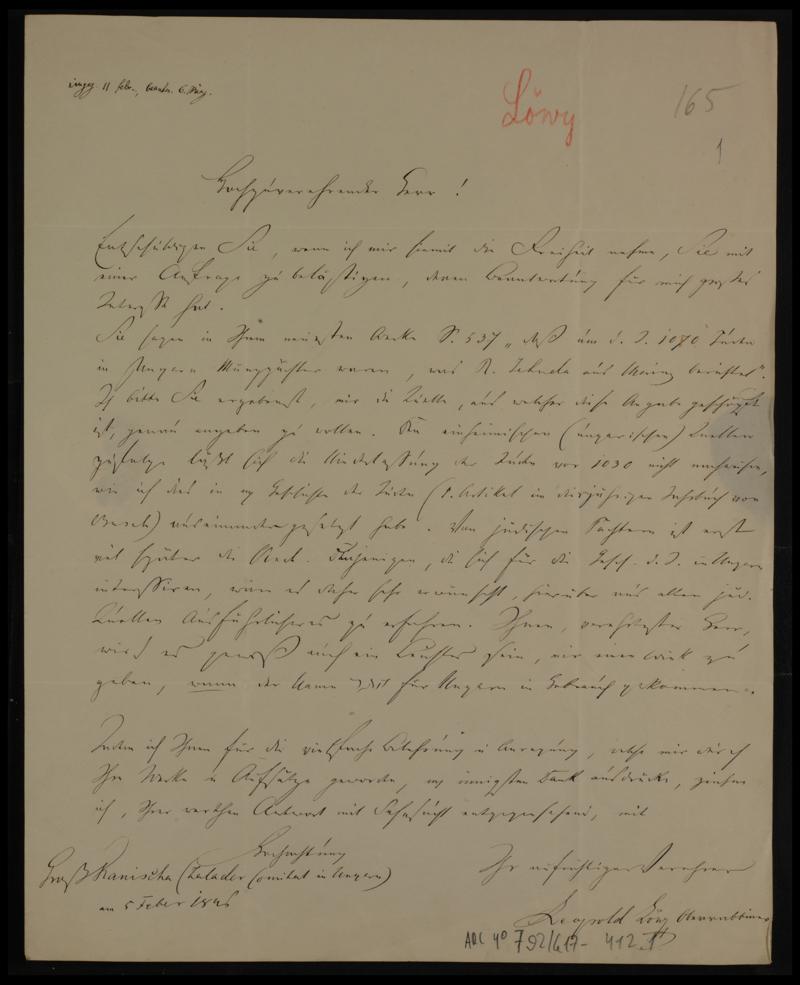 eingeg. 11 Febr., beantw. 6. März.
Löwy
165
1
Hochzuverehrender Herr!
Entschuldigen Sie, wenn ich mir hiemit die Freiheit nehme, Sie mit
einer Anfrage zu belästigen, deren Beantwortung für mich großes
Interesse hat.
Sie sagen in Ihrem neuesten Werke S. 537 „daß um d. J. 1070 Juden
in Ungarn Münzpächter waren, was R. Jehuda aus Mainz berichtet“.
Ich bitte Sie ergebenst, mir die Quelle, aus welcher diese Angabe geschöpft
ist, genau angeben zu wollen. Den einheimischen (ungarischen) Quellen
zufolge läßt sich die Niederlassung der Juden vor 1030 nicht nachweisen,
wie ich dies in m. Geschichte der Juden (1. Artikel im diesjährigen Jahrbuch von
Busch) auseinander gesetzt habe. Von jüdischen Pächtern ist erst
viel später die Rede. Denjenigen, die sich für die Gesch. d. J. in Ungarn
interessiren, wäre es daher sehr erwünscht, hierüber aus alten jüd.
Quellen Ausführlicheres zu erfahren. Ihnen, verehrtester Herr,
wird es gewiß auch ein Leichtes sein, mir einen Wink zu
geben, wann der Name für Ungarn in Gebrauch gekommen.
Indem ich Ihnen für die vielfache Belehrung u Anregung, welche mir durch
Ihre Werke u Aufsätze geworden, m innigsten Dank ausdrücke, zeichne
ich, Ihrer werthen Antwort mit Sehnsucht entgegensehend, mit
Hochachtung
Ihr aufrichtiger Verehrer
Groß Kanischa (Zalader Comitat in Ungarn)
am 5 Feber 1846
Leopold Löw Oberrabbiner
ARC 4° 792/G17-412.1